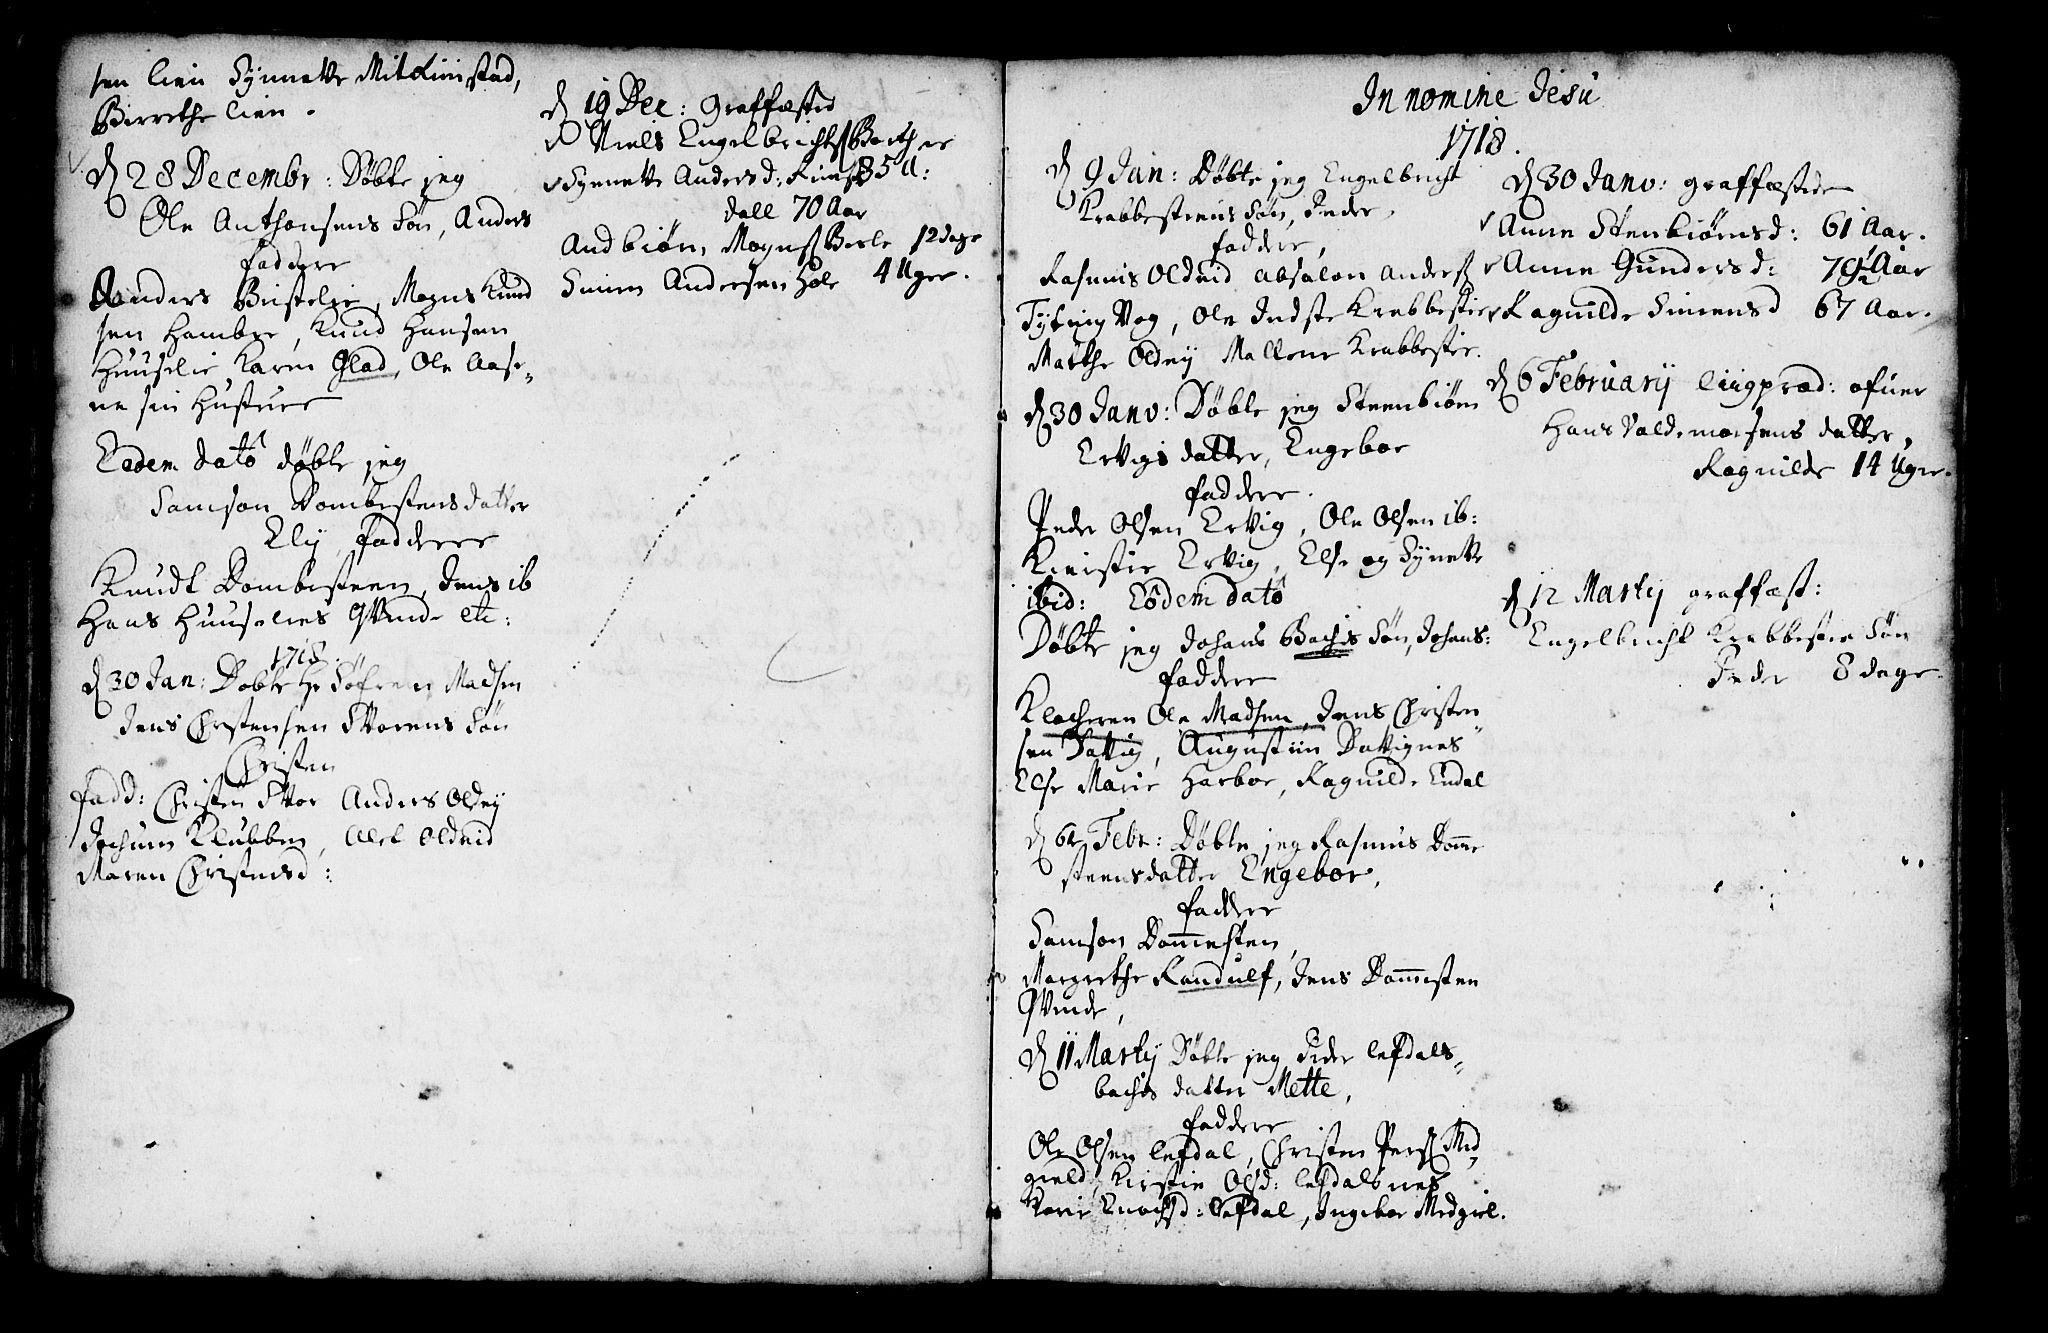 sen Lien Synnette Mitkinstad,
Birrethe Lien.
D 28 Decembr: Döbte jeg
Ole Anthonsens Sön, Anders
faddere
Anders Bustelie, Mogns Knud
sen Hambre, Knud Hansen
Huuselie Karen Glad, Ole Aase-
ne sin Hustrue
Eodem dato döbte jeg
Samson Dombestens datter
Ely faddere
Knudt Dombesteen, Jens ib
Hans Huuselies Qvinde etc:
1718
D 30 Jan: Döbte Hr Söfren Madsen
Jens Christensen Svorens Sön
Christen
fadd: Christen Svor Anders Oldeij
Jochum Klubben, Alet Oldeid
Maren Christensd:
D 19 Dec: Graffæsted
Niels Engelbrichtss Barth
Synnette Andersd: 35 U:
dall 70 Aar
Andbiön, Mognss Berle 12 dage
Simen Andersen Hole 4 Uger.
In nomine Jesu
1718.
D 9 Jan: Döbte jeg Engelbricht
Krabbesteens Sön, Peder,
faddere,
Rasmus Oldeid Absalon Anderss
Vog, Ole Indste Krabbestie
Marthe Oldeij Mallene Krabbestie.
D 30 Janv: Döbte jeg Steenbiörn
Ervigs datter, Engebor
faddere.
Peder Olsen Ervig, Ole Olsen ib:
Kierstie Ervig, Else og Synnette
ibid: Eodem dato
Döbte jeg Johans Bachs Sön, Johans:
faddere
Klocheren Ole Madsen, Jens Christen
sen Dattig, Augustin Dattignes
Else Marie Harboe, Ragnilde Endal
D 6 Febr: Döbte jeg Rasmus Domme
steensdatter Engebor,
faddere
Samson Dommesten,
Margrethe Randulf, Jens Dommesten
Qvinde,
D 11 Martij Döbte jeg Peder Lefdals-
bachs datter Mette,
faddere
Ole Olsen Lefdal, Christen Perss Med
gield, Kirstie Olsd: Lefdalsnes
Karie Knudsd: Lefdal, Ingebor Medgiel.
D 30 Janv: graffæstede
Anne Stenbiörnsd: 61 Aar.
Anne Gundersd: 79½ Aar
Ragnilde Simensd 67 Aar.
D 6 Februarij liigpræd: ofuer
Hans Valdemarsens datter,
Ragnilde 14 Uger.
D 12 Martij graffæst:
Engelbricht Krabbestie Sön
Peder 8 dage.